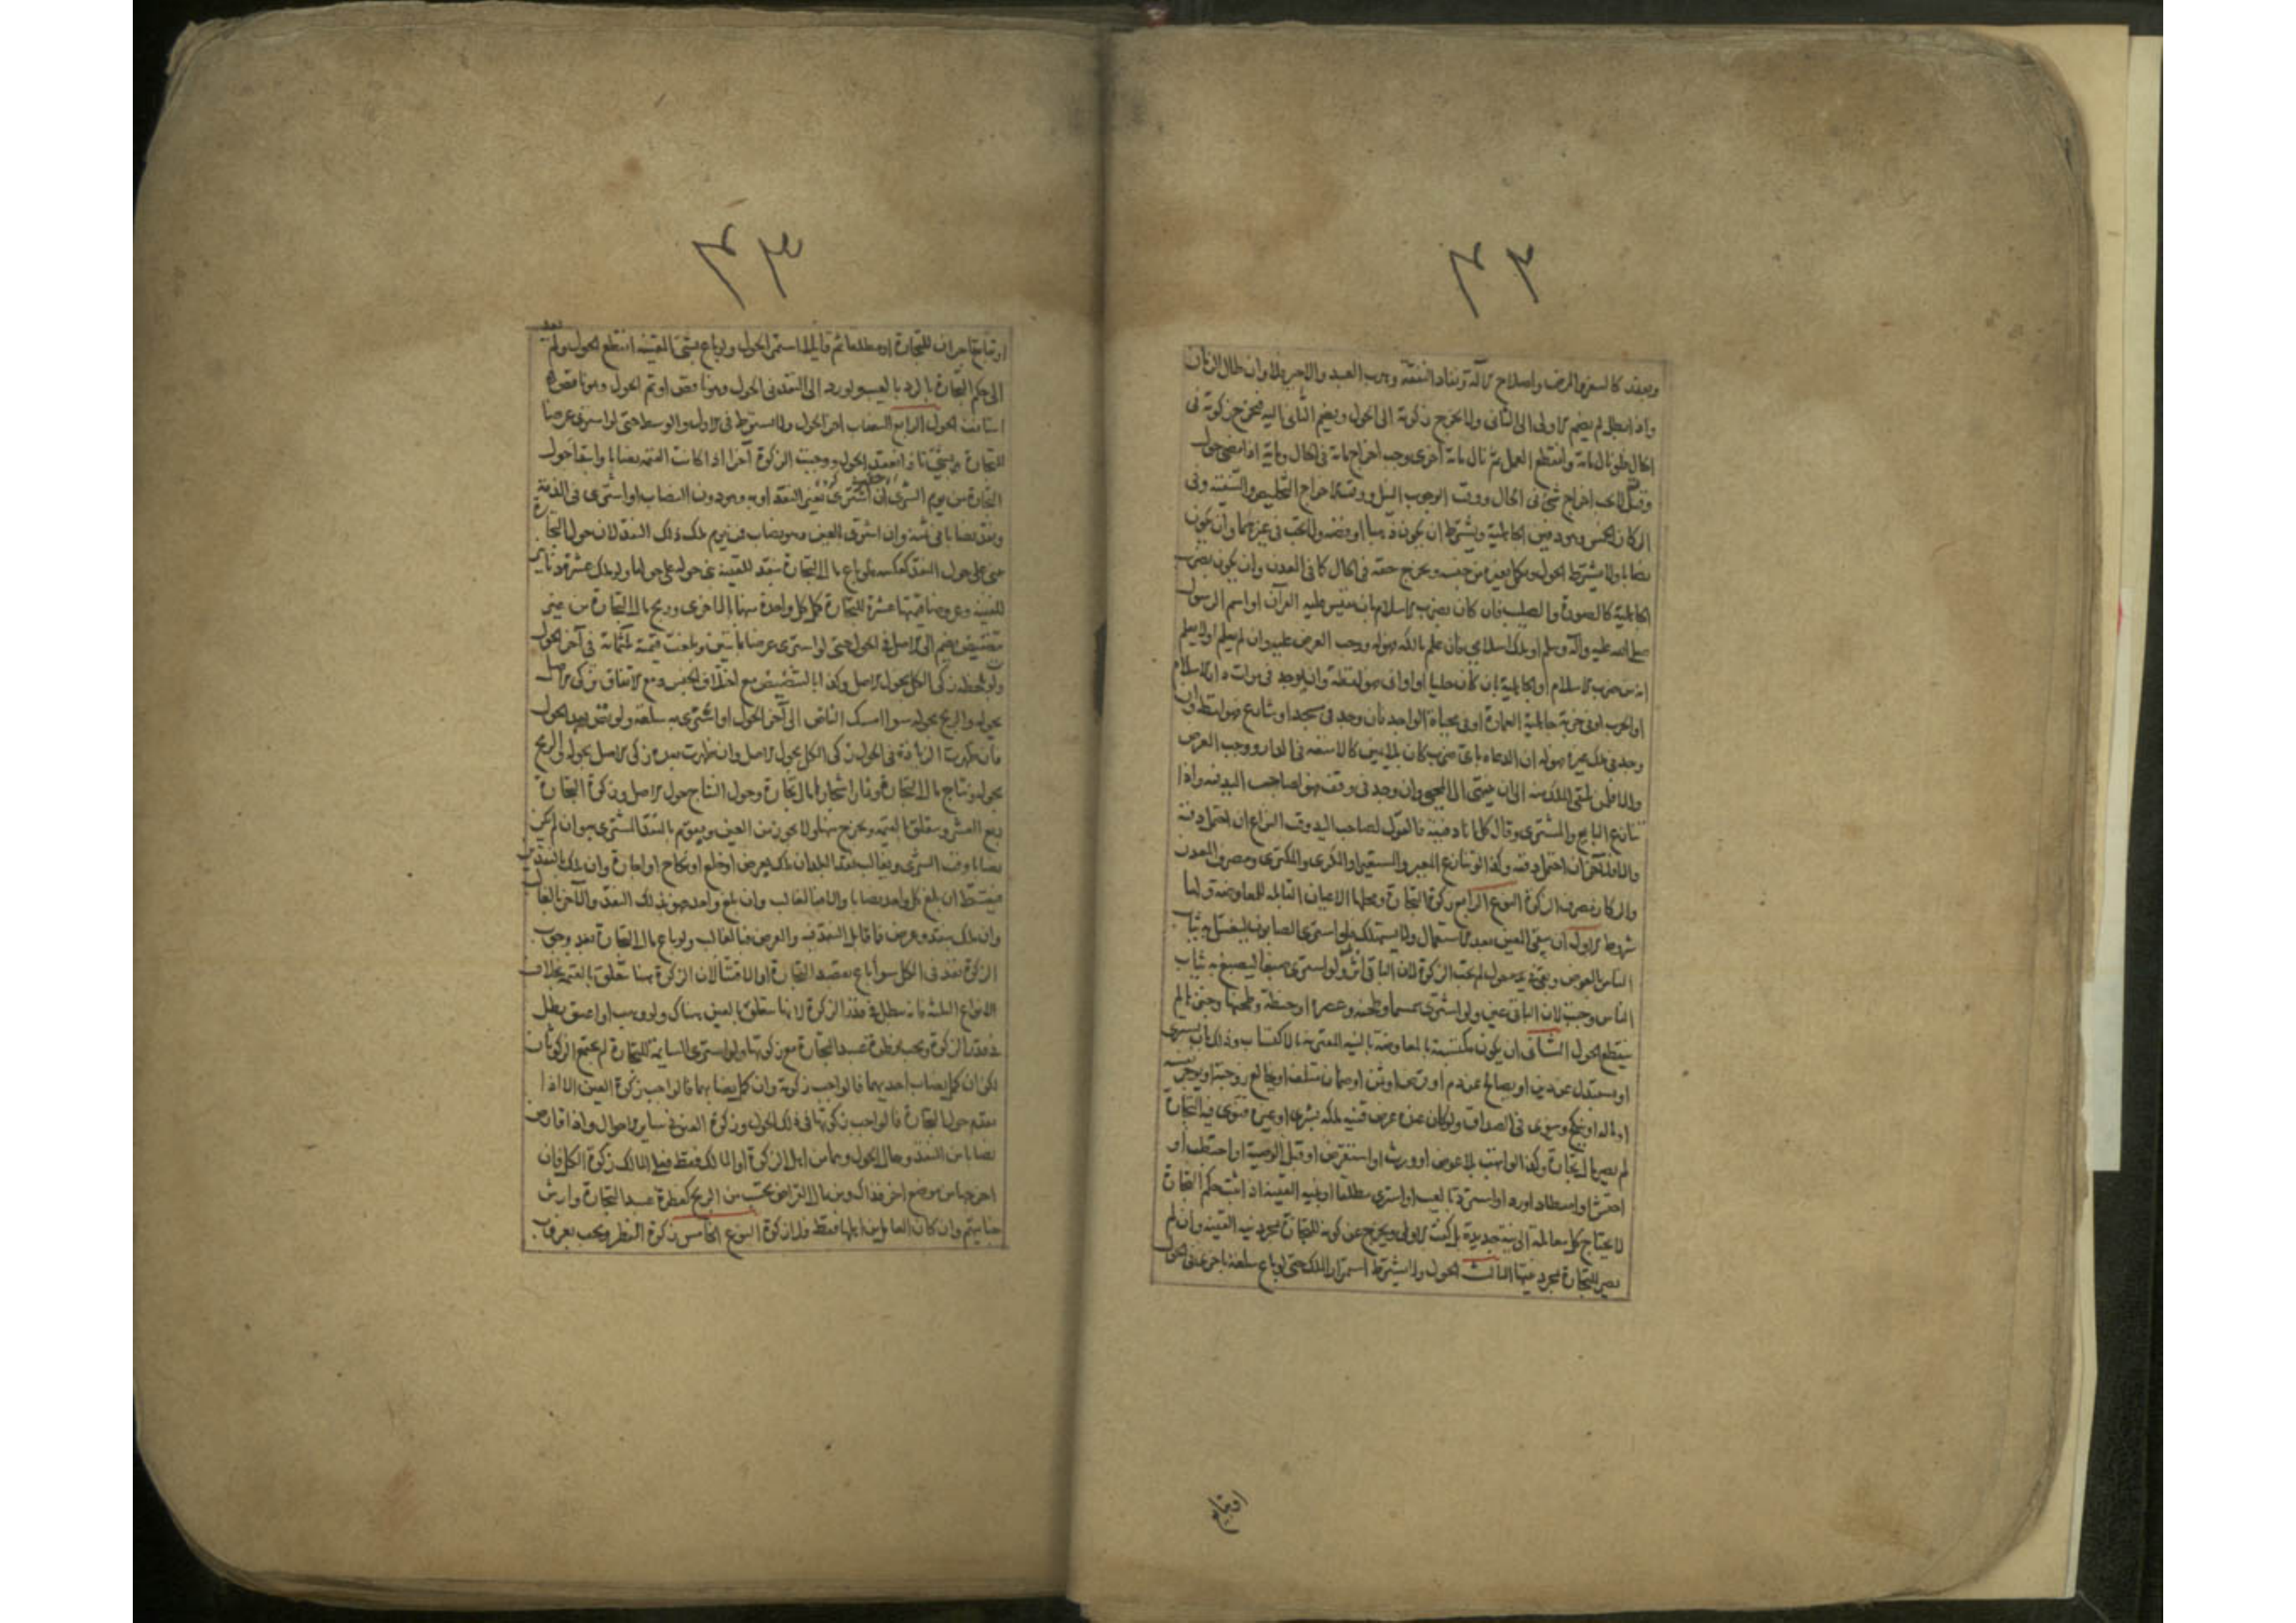 ٤٢
وبعذر كالسفر والمرض واصلاح الآلة ونفاد النفقة وهرب العبد والاجير فلا وان طال الزمان
واذا بطل لم يضم الاول الى الثاني ولا يخرج زكوته الى الحول ويضم الثاني اليه فيخرج زكوته في
الحال فلو نال مائة وانقطع العمل ثم نال مائة اخرى وجب اخراج مائة في الحال ومائة اذا مضى حول
وقبل لا يجب اخراج شئ في الحال ووقت الوجوب النيل ووقت الاخراج التخليص والتنقية وفي
الركاز الخمس وهو دفين الجاهلية ويشترط ان يكون ذهبا او فضة ولا يجب في غيرهما وان يكون
نصابا ولا يشترط الحول ويكمل بغيره من جنسه ويخرج حقه في الحال كما في المعدن وان يكون بضرب
الجاهلية كالصورة والصليب فان كان بضرب الاسلام بان نقش عليه القرآن او اسم الرسول
صلى الله عليه وآله وسلم او ملك اسلامي فان علم مالكه فهو له ووجب العرض عليه وان لم يعلم او لا يعلم
انه من ضرب الاسلام او الجاهلية بان كان حليا او اواني فهو لقطة وان يوجد في موات دار الاسلام
او الحرب او في خربة جاهلية العمارة او في محياة الواجد فان وجد في مسجد او شارع فهو لقطة وان
وجد في ملك غيره فهو له ان ادعاه باي ضرب كان بلا يمين كالامتعة في الدار ووجب العرض
والا فلمن تلقى الملك منه الى ان ينتهى الى المحيي وان وجد في وقف فهو لصاحب اليد فيه واذا
تنازع البايع والمشترى وقال كل انا دفنته فالقول لصاحب اليد وقت النزاع ان احتمل دفنه
والا فللآخر ان احتمل دفنه وكذا لو تنازع المعير والمستعير او المكرى والمكترى ومصرف المعدن
والركاز مصرف الزكوة النوع الرابع زكوة التجارة ومحلها الاعيان القابلة للمعاوضة ولها
شروط الاول ان يبقى العين بعد الاستعمال ولا يستهلك فلو اشترى الصابون ليغسل به ثياب
الناس بالعوض وبقي في يده حول لم يجب الزكوة لان الباقي اثر ولو اشترى صبغا ليصبغ به ثياب
الناس وجبت لان الباقي عين ولو اشترى سمسما وطحنه وعصره او حنطة وطحنها وخبزها لم
ينقطع الحول الثاني ان يكون مكتسبة بالمعاوضة بالنية المقترنة بالاكتساب وذلك بان يشترى
او يستبدل عن دين او يصالح عن دم او قرض او ثمن او ضمان متلف او يخالع زوجة او يوجر نفسه
او ماله او ينكح وينوى في الصداق ولو كان عنده عرض قنية ملكه بشرى او غيره فنوى فيه التجارة
لم يصر مال تجارة وكذا لو اتهب بلا عوض او ورث او استقرض او قبل الوصية او احتطب او
احتش او اصطاد او رد او استرد بالعيب او اشترى مطلقا او بنية القنية اذا ثبت حكم التجارة
لا يحتاج كل معاملة الى نية جديدة بل كفت الاولى ويخرج عن كونه للتجارة بمجرد نية القنية وان لم
يصر للتجارة بمجرد نيتها الثالث الحول ولا يشترط استمرار الملك حتى لو باع سلعة باخرى في الحول
٤٣
او تبايع تاجران للتجارة او مطلقا ثم تقايلا استمر الحول ولو باع بشئ للقنية انقطع الحول ولم يعد
الى حكم التجارة بالرد بالعيب ولو رد الى النقد في الحول وهو ناقص او تم الحول وهو ناقص
استأنف الحول الرابع النصاب آخر الحول ولا يشترط في الاول والوسط حتى لو اشترى عرضا
للتجارة بشئ تافه انعقد الحول ووجبت الزكوة آخرا اذا كانت القيمة نصابا وابتداء حول
التجارة من يوم الشرى ان اشترى بغير النقد او به وهو دون النصاب او اشترى في الذمة
ونقد نصابا في ثمنه وان اشترى بالعين وهو نصاب فمن يوم ملك ذلك النقد لان حول التجارة
مبنى على حول النقد كعكسه فلو باع مال التجارة بنقد للقنية بنى حوله على حولها ولو ملك عشرة دنانير
للقنية وعروضا قيمتها عشرة للتجارة كمل كل واحدة منها بالاخرى وربح مال التجارة من غير
تنضيض يضم الى الاصل في الحول حتى لو اشترى عرضا بمائتين وبلغت قيمته ثلثمائة في آخر الحول
ولو بلحظة زكى الكل بحول الاصل وكذا بالتنضيض مع اختلاف الجنس ومع الاتفاق زكى الاصل
بحوله والربح بحوله سواء امسك الناض الى آخر الحول او اشترى به سلعة ولو نض بعد الحول
فان ظهرت الزيادة في الحول زكى الكل بحول الاصل وان ظهرت بعده زكى الاصل بحوله والربح
بحوله ونتاج مال التجارة وثمار اشجارها مال تجارة وحول النتاج حول الاصل وزكوة التجارة
ربع العشر ويتعلق بالقيمة ويخرج منها ولا يجوز من العين ويقوم بالنقد المشترى به وان لم يكن
نصابا وقت الشرى وبغالب نقد البلد ان ملك بعرض او خلع او نكاح او اجارة وان ملك بالنقدين
فيقسط ان بلغ كل واحد نصابا والا فبالغالب وان بلغ واحد فهو بذلك النقد والآخر بالغالب
وان ملك بنقد وعرض فما قابل النقد فبه والعرض فبالغالب ولو باع مال التجارة بعد وجوب
الزكوة نفذ في الكل سواء باع بقصد التجارة او الاقتناء لان الزكوة هنا تتعلق بالقيمة بخلاف
الانواع الثلثة فانه يبطل في قدر الزكوة لانها تتعلق بالعين هناك ولو وهب او اعتق بطل
في قدر الزكوة ويجب فطرة عبد التجارة مع زكوتها ولو اشترى السايمة للتجارة لم يجتمع الزكوتان
لكن ان كمل نصاب احديهما فالواجب زكوته وان كمل نصابهما فالواجب زكوة العين الا اذا
تقدم حول التجارة فالواجب زكوتها في ذلك الحول وزكوة العين في ساير الاحوال واذا قارض
نصابا من النقد وحال الحول وهما من اهل الزكوة او المالك فقط فعلى المالك زكوة الكل فان
اخرجها من موضع آخر فذاك ومن مال القراض يحتسب من الربح كفطرة عبد التجارة وارش
جنايتهم وان كان العامل من اهلها فقط فلا زكوة النوع الخامس زكوة الفطر ويجب بغروب
او تبايع